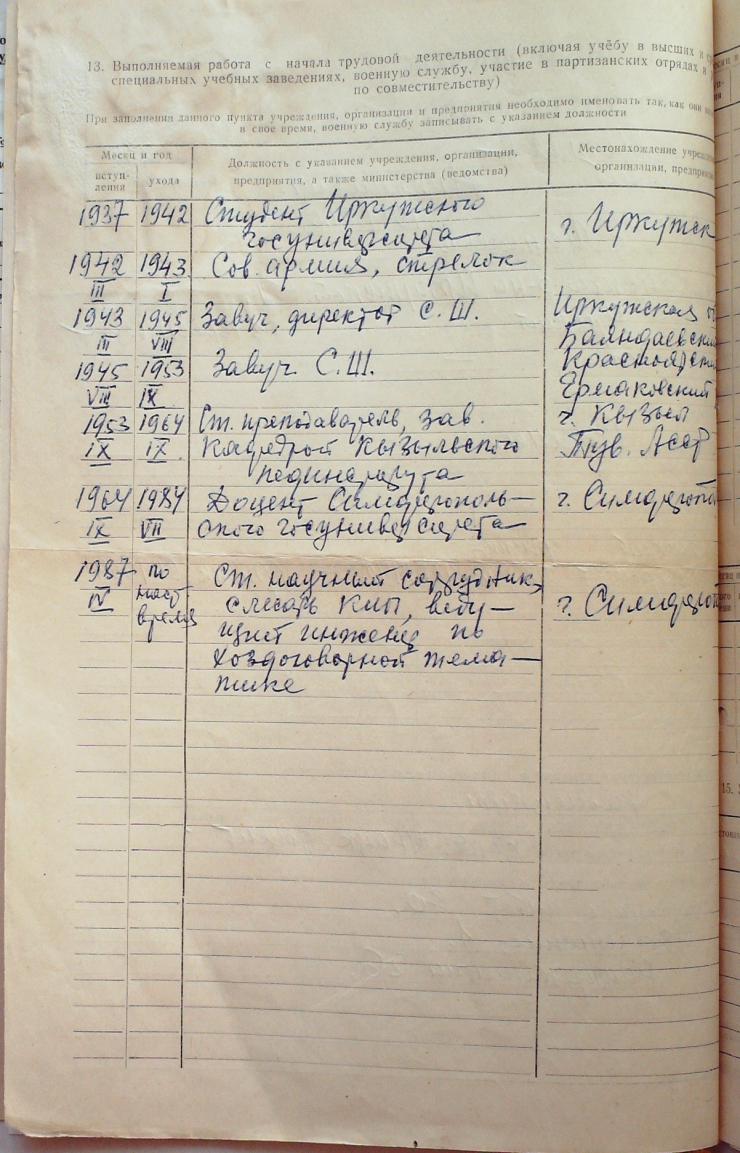 13. Выполняемая работа с начала трудовой деятельности (включая учёбу в высших и
специальных учебных заведениях, военную службу, участие в партизанских отрядах и
по совместительству)
При заполнении данного пункта учреждения, организации и предприятия необходимо именовать так, как они
в свое время, военную службу записывать с указанием должности
Месяц и год
вступ-
ления
ухода
Должность с указанием учреждения, организации,
предприятия, а также министерства (ведомства)
Местонахождение учрежд
организации, предприя
1937 1942 Студент Иркутского г. Иркутск
госуниверситета
1942 1943 Сов. армия, стрелок
III I
1943 1945 Завуч, директор С. Ш. Иркутская о
III VIII Баяндаевский
1945 1953 Завуч С. Ш. Красноярски
VIII IX Ермаковский
1953 1964 Ст. преподаватель, зав. г. Кызыл
IX IX Кафедрой Кызыльского Тув. АССР
пединститута
1964 1984 Доцент Симферополь- г. Симферопо
IX VII ского госуниверситета
1987 по Ст. научный сотрудник,
IV наст время слесарь КИП, веду- г. Симфероп
щий инженер по
хоздоговорной тема-
тике
15.